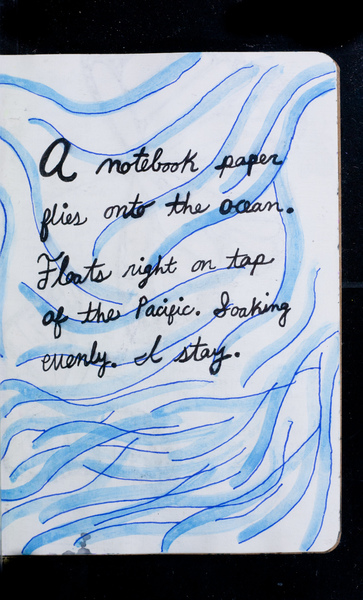 A notebook paper
flies onto the ocean.
Floats right on top
of the Pacific. Soaking
evenly. I stay.